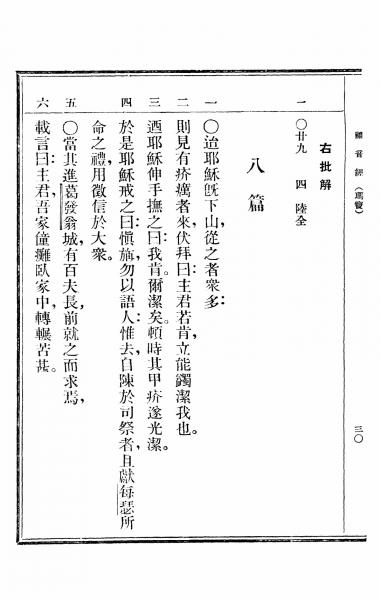 福音經(瑪竇) 三〇
右批解
一 〇廿九 四 陸全
八篇
一 〇迨耶穌旣下山,從之者衆多:
二 則見有疥癘者來,伏拜曰:主君若肯,立能蠲潔我也。
三 迺耶穌伸手撫之曰:我肯。爾潔矣。頓時其甲疥遂光潔。
四 於是耶穌戒之曰:愼旃,勿以語人:惟去,自陳於司祭者,且獻每瑟所
命之禮,用徵信於大衆。
五 〇當其進葛發翁城,有百夫長,前就之而求焉,
六 載言曰:主君,吾家僮癱臥家中,轉輾苦甚。